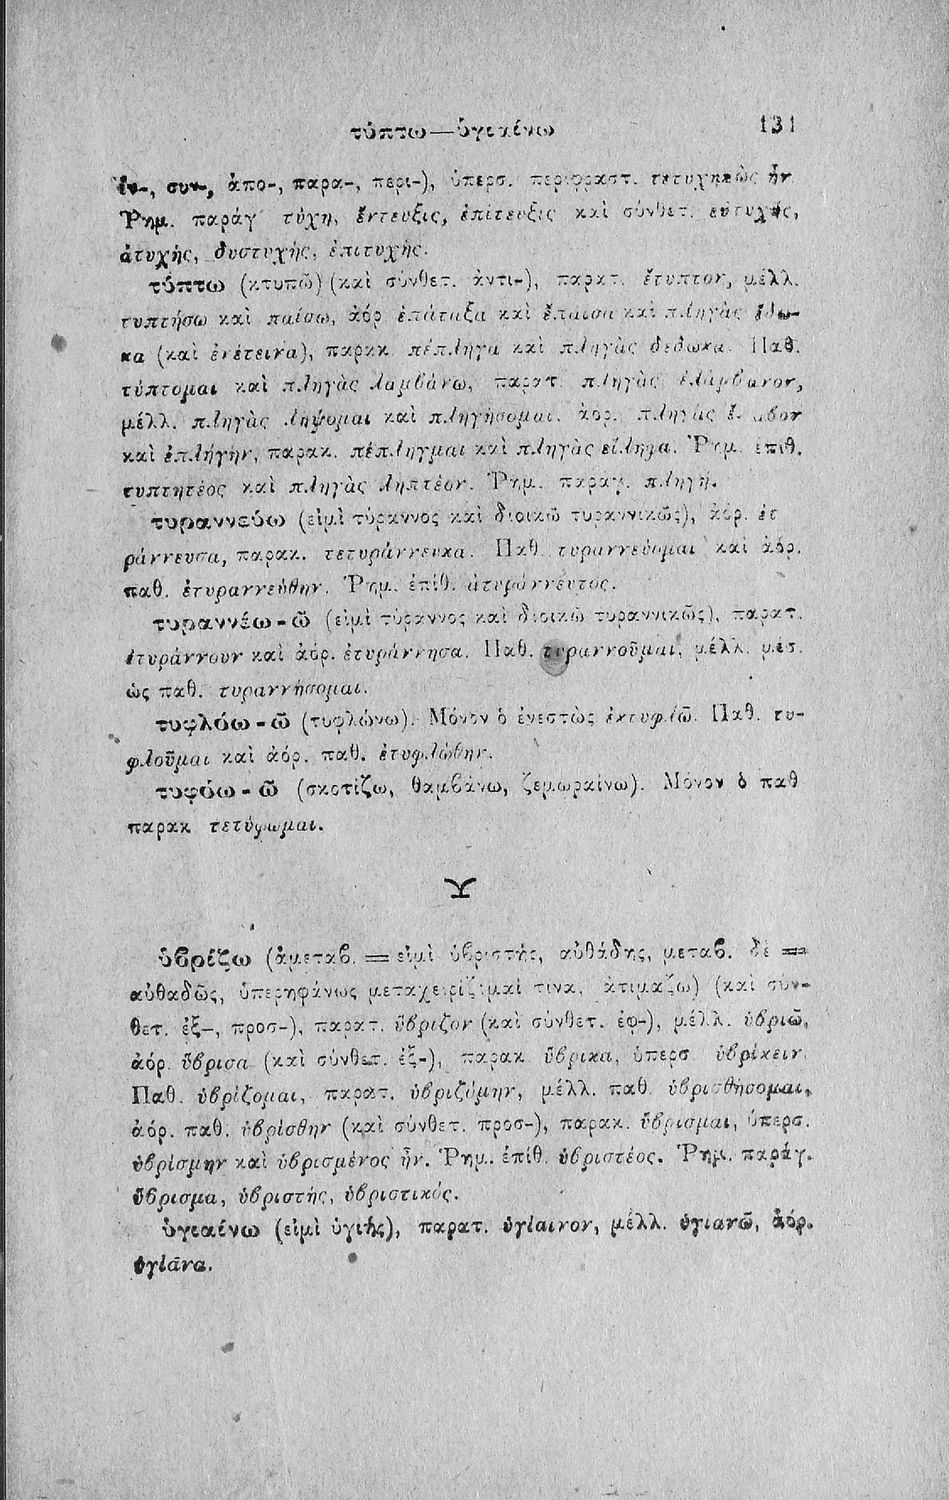 τύπτω—ὑγιαίνω 131
ἐν-, συν-, ἀπο-, παρα-, περι-), ὑπερσ. περιφραστ. τετυχηκὼς ἦν
Ῥημ. παράγ τύχη, ἔντευξις, ἐπίτευξις καὶ σύνθετ. εὐτυχής,
ἀτυχής, δυστυχής, ἐπιτυχής.
τύπτω (κτυπῶ) (καὶ σύνθετ. ἀντι-), παρατ. ἔτυπτον, μέλλ.
τυπτήσω καὶ παίσω, ἀόρ ἐπάταξα καὶ ἔπαισα καὶ πληγὰς ἔδω-
κα (καὶ ἐνέτεινα), παρακ πέπληγα καὶ πληγὰς δέδωκα. Παθ.
τύπτομαι καὶ πληγὰς λαμβάνω, παρατ. πληγὰς ἐλάμβανον,
μέλλ. πληγὰς λήψομαι καὶ πληγήσομαι, ἀόρ. πληγὰς ἔλαβον
καὶ ἐπλήγην, παρακ. πέπληγμαι καὶ πληγὰς εἴληφα. Ῥημ. ἐπιθ.
τυπτητέος καὶ πληγὰς ληπτέον. Ῥημ. παραγ. πληγή.
τυραννεύω (εἰμὶ τύραννος καὶ διοικῶ τυραννικῶς), ἀόρ. ἐτ
ράννευσα, παρακ. τετυράννευκα. Παθ. τυραννεύομαι καὶ ἀόρ.
παθ. ἐτυραννεύθην. Ῥημ. ἐπίθ. ἀτυράννευτος.
τυραννέω-ῶ (εἰμὶ τύραννος καὶ διοικῶ τυραννικῶς), παρατ.
ἐτυράννουν καὶ ἀόρ. ἐτυράννησα. Παθ. τυραννοῦμαι, μέλλ. μέσ.
ὡς παθ. τυραννήσομαι.
τυφλόω-ῶ (τυφλώνω). Μόνον ὁ ἐνεστὼς ἐκτυφλῶ. Παθ. τυ-
φλοῦμαι καὶ ἀόρ. παθ. ἐτυφλώθην.
τυφόω-ῶ (σκοτίζω, θαμβάνω, ζεμωραίνω). Μόνον ὁ παθ
παρακ τετύφωμαι.
Υ
ὑβρίζω (ἀμεταβ. = εἰμὶ ὑβριστής, αὐθάδης, μεταβ. δὲ =
αὐθαδῶς, ὑπερηφάνως μεταχειρίζομαί τινα, ἀτιμάζω) (καὶ σύν-
θετ. ἐξ-, προσ-), παρατ. ὕβριζον (καὶ σύνθετ. ἐφ-), μέλλ. ὑβριῶ,
ἀόρ. ὕβρισα (καὶ σύνθετ. ἐξ-), παρακ ὕβρικα, ὑπερσ ὑβρίκειν.
Παθ. ὑβρίζομαι, παρατ. ὑβριζόμην, μέλλ. παθ. ὑβρισθήσομαι,
ἀόρ. παθ. ὑβρίσθην (καὶ σύνθετ. προσ-), παρακ. ὕβρισμαι, ὑπερσ.
ὑβρίσμην καὶ ὑβρισμένος ἦν. Ῥημ. ἐπίθ. ὑβριστέος. Ῥημ. παράγ.
ὕβρισμα, ὑβριστής, ὑβριστικός.
ὑγιαίνω (εἰμὶ ὑγιής), παρατ. ὑγίαινον, μέλλ. ὑγιανῶ, ἀόρ.
ὑγίανα.